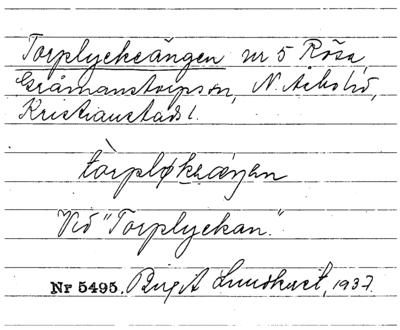 Torplyckeängen nr 5 Rösa
Gråmanstorpssn, N. Åsbo hd,
Kristianstads l.
tòrpløkəæ̀ŋən
Vid "Torplyckan."
Nr 5495. Birgit Lundkvist, 1937.